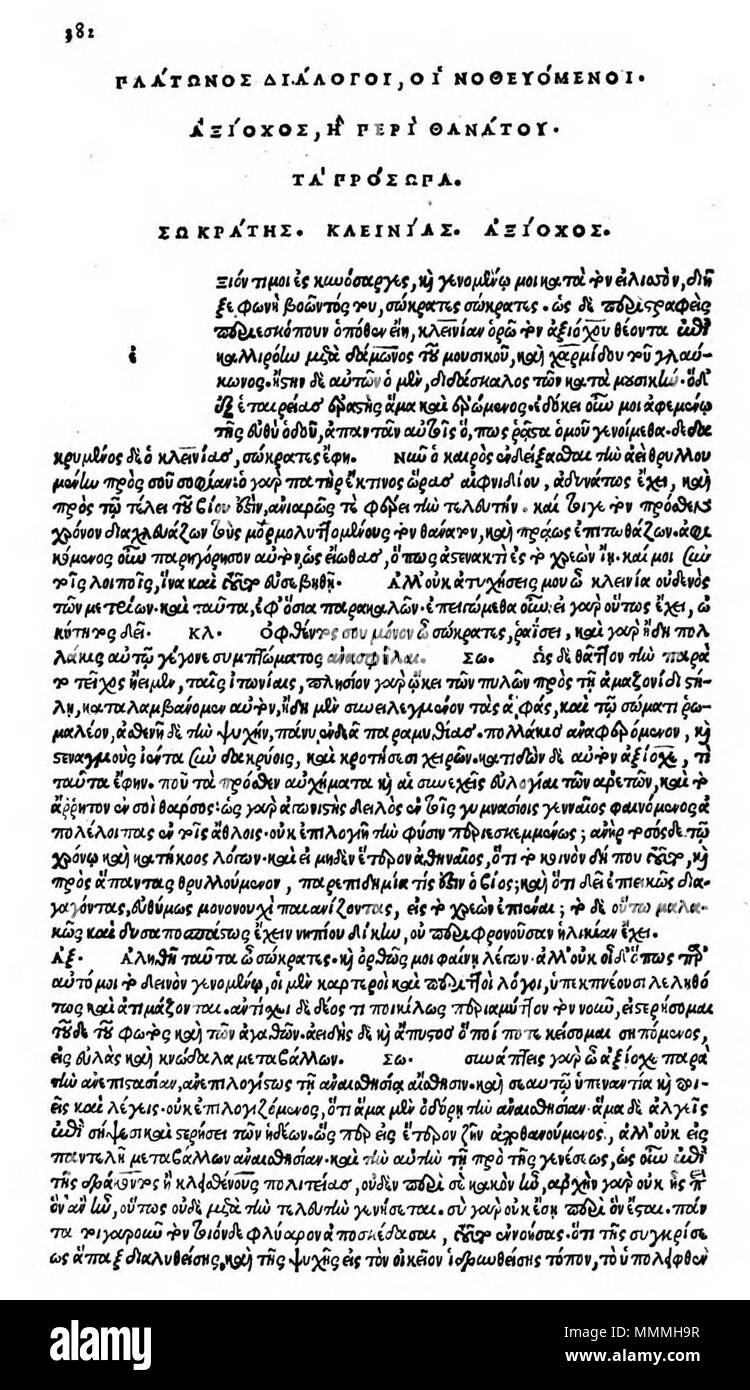 382
ΠΛΆΤΩΝΟΣ ΔΙΆΛΟΓΟΙ, ΟἹ ΝΟΘΕΥΌΜΕΝΟΙ.
ἈΞΊΟΧΟΣ, Ἢ ΠΕΡῚ ΘΑΝΆΤΟΥ.
ΤᾺ ΠΡΌΣΩΠΑ.
ΣΩΚΡΆΤΗΣ. ΚΛΕΙΝΊΑΣ. ἈΞΊΟΧΟΣ.
ξιόντι μοι ἐς κυνόσαργες, καὶ γενομένῳ μοι κατὰ τὸν εἰλισὸν, διῇ
ξε φωνὴ βοῶντός του, σώκρατες σώκρατες. ὡς δὲ περιστραφεὶς
περιεσκόπουν ὁπόθεν εἴη, κλεινίαν ὁρῶ τὸν ἀξιόχου θέοντα ἐπὶ
ἐ καλλιρόην μετὰ δάμωνος τοῦ μουσικοῦ, καὶ χαρμίδου τοῦ γλαύ-
κωνος. ἤστην δὲ αὐτῶν ὁ μὲν, διδάσκαλος τῶν κατὰ μουσικήν. ὁ δ'
ἐξ ἑταιρείας ἐραστὴς ἅμα καὶ ἐρώμενος. ἐδόκει οὖν μοι ἀφεμένῳ
τῆς εὐθὺ ὁδοῦ, ἀπαντᾶν αὐτοῖς ὅπως ῥᾷστα ὁμοῦ γενοίμεθα. δεδα
κρυμένος δὲ ὁ κλεινίας, σώκρατες ἔφη. Νῦν ὁ καιρὸς ἐνδείξασθαι τὴν ἀεὶ θρυλλου
μένην πρὸς σοῦ σοφίαν. ὁ γὰρ πατὴρ ἔκ τινος ὥρας αἰφνιδίου, ἀδυνάτως ἔχει, καὶ
πρὸς τῷ τέλει τοῦ βίου ἐστὶν, ἀνιαρῶς τε φέρει τὴν τελευτήν. καί τοι γε τὸν πρόσθεν
χρόνον διαχλευάζων τοὺς μορμολυττομένους τὸν θάνατον, καὶ πράως ἐπιτωθάζων. ἀφι
κόμενος οὖν παρηγόρησον αὐτὸν, ὡς εἴωθας, ὅπως ἀστενακτὶ ἐς τὸ χρεὼν ἴῃ. καί μοι σὺν
τοῖς λοιποῖς, ἵνα καὶ τοῦτο εὐσεβηθῇ. Ἀλλ' οὐκ ἀτυχήσεις μου ὦ κλεινία οὐδενὸς
τῶν μετρίων. καὶ ταῦτα, ἐφ' ὅσια παρακαλῶν. ἐπειγώμεθα οὖν. εἰ γὰρ οὕτως ἔχει, ὠ
κύτητος δεῖ. ΚΛ. Ὀφθέντος σου μόνον ὦ σώκρατες, ῥαΐσει, καὶ γὰρ ἤδη πολ
λάκις αὐτῷ γέγονε συμπτώματος ἀνασφῆλαι. ΣΩ. Ὡς δὲ θᾶττον τὴν παρὰ
τὸ τεῖχος ᾔειμεν, ταῖς ἰτωνίαις, πλησίον γὰρ ᾤκει τῶν πυλῶν πρὸς τῇ ἀμαζονίδι στή-
λῃ, καταλαμβάνομεν αὐτὸν, ἤδη μὲν συνειλεγμένον τὰς ἁφὰς, καὶ τῷ σώματι ῥω-
μαλέον, ἀσθενῆ δὲ τὴν ψυχὴν, πάνυ ἐνδεᾶ παραμυθίας. πολλάκις ἀναφερόμενον, καὶ
στεναγμοὺς ἱέντα σὺν δακρύοις, καὶ κροτήσεσι χειρῶν. κατιδὼν δὲ αὐτὸν ἀξίοχε, τί
ταῦτα ἔφην. ποῦ τὰ πρόσθεν αὐχήματα καὶ αἱ συνεχεῖς εὐλογίαι τῶν ἀρετῶν, καὶ τὸ
ἄρρητον ἐν σοὶ θάρσος; ὡς γὰρ ἀγωνιστὴς δειλὸς ἐν τοῖς γυμνασίοις γενναῖος φαινόμενος ἀ
πολέλοιπας ἐν τοῖς ἄθλοις. οὐκ ἐπιλογιῇ τὴν φύσιν περιεσκεμμένως; ἀνὴρ τοσόσδε τῷ
χρόνῳ καὶ κατήκοος λόγων. καὶ εἰ μηδὲν ἕτερον ἀθηναῖος, ὅτι τὸ κοινὸν δή που τοῦτο, καὶ
πρὸς ἅπαντας θρυλλούμενον, παρεπιδημία τίς ἐστιν ὁ βίος; καὶ ὅτι δεῖ ἐπιεικῶς δια-
γαγόντας, εὐθύμως μονονουχὶ παιανίζοντας, εἰς τὸ χρεὼν ἐπιέναι; τὸ δὲ οὕτω μαλα-
κῶς καὶ δυσαποσπάστως ἔχειν νηπίου δίκην, οὐ περιφρονοῦσαν ἡλικίαν ἔχει.
ΑΞ. Ἀληθῆ ταῦτα ὦ σώκρατες. καὶ ὀρθῶς μοι φαίνῃ λέγων. ἀλλ' οὐκ οἶδ' ὅπως παρ'
αὐτό μοι τὸ δεινὸν γενομένῳ, οἱ μὲν καρτεροὶ καὶ περιττοὶ λόγοι, ὑπεκπνέουσι λεληθό
τως καὶ ἀτιμάζονται. ἀντίσχει δὲ δέος τι ποικίλως περιαμύττον τὸν νοῦν, εἰ στερήσομαι
τοῦδε τοῦ φωτὸς καὶ τῶν ἀγαθῶν. ἀειδὴς δὲ καὶ ἄπυστος ὅποί ποτε κείσομαι σηπόμενος,
εἰς εὐλὰς καὶ κνώδαλα μεταβάλλων. ΣΩ. συνάπτεις γὰρ ὦ ἀξίοχε παρὰ
τὴν ἀνεπιστασίαν, ἀνεπιλογίστως τῇ ἀναισθησίᾳ αἴσθησιν. καὶ σεαυτῷ ὑπεναντία καὶ ποι-
εῖς καὶ λέγεις. οὐκ ἐπιλογιζόμενος, ὅτι ἅμα μὲν ὀδύρῃ τὴν ἀναισθησίαν. ἅμα δὲ ἀλγεῖς
ἐπὶ σήψεσι καὶ στερήσει τῶν ἡδέων. ὥσπερ εἰς ἕτερον ζῆν ἀποθανούμενος, ἀλλ' οὐκ εἰς
παντελῆ μεταβάλλων ἀναισθησίαν. καὶ τὴν αὐτὴν τῇ πρὸ τῆς γενέσεως, ὡς οὖν ἐπὶ
τῆς δράκοντος ἢ κλεισθένους πολιτείας, οὐδὲν περὶ σὲ κακὸν ἦν, ἀρχὴν γὰρ οὐκ ἦς περὶ
ὃν ἂν ἦν, οὕτως οὐδὲ μετὰ τὴν τελευτὴν γενήσεται. σὺ γὰρ οὐκ ἔσῃ περὶ ὃν ἔσται. πάν
τα τοιγαροῦν τὸν τοιόνδε φλύαρον ἀποσκέδασαι, τοῦτο ἐννοήσας. ὅτι τῆς συγκρίσε
ως ἅπαξ διαλυθείσης, καὶ τῆς ψυχῆς εἰς τὸν οἰκεῖον ἱδρυνθείσης τόπον, τὸ ὑπολειφθὲν
alamy
Image ID: MMMH9R
www.alamy.com